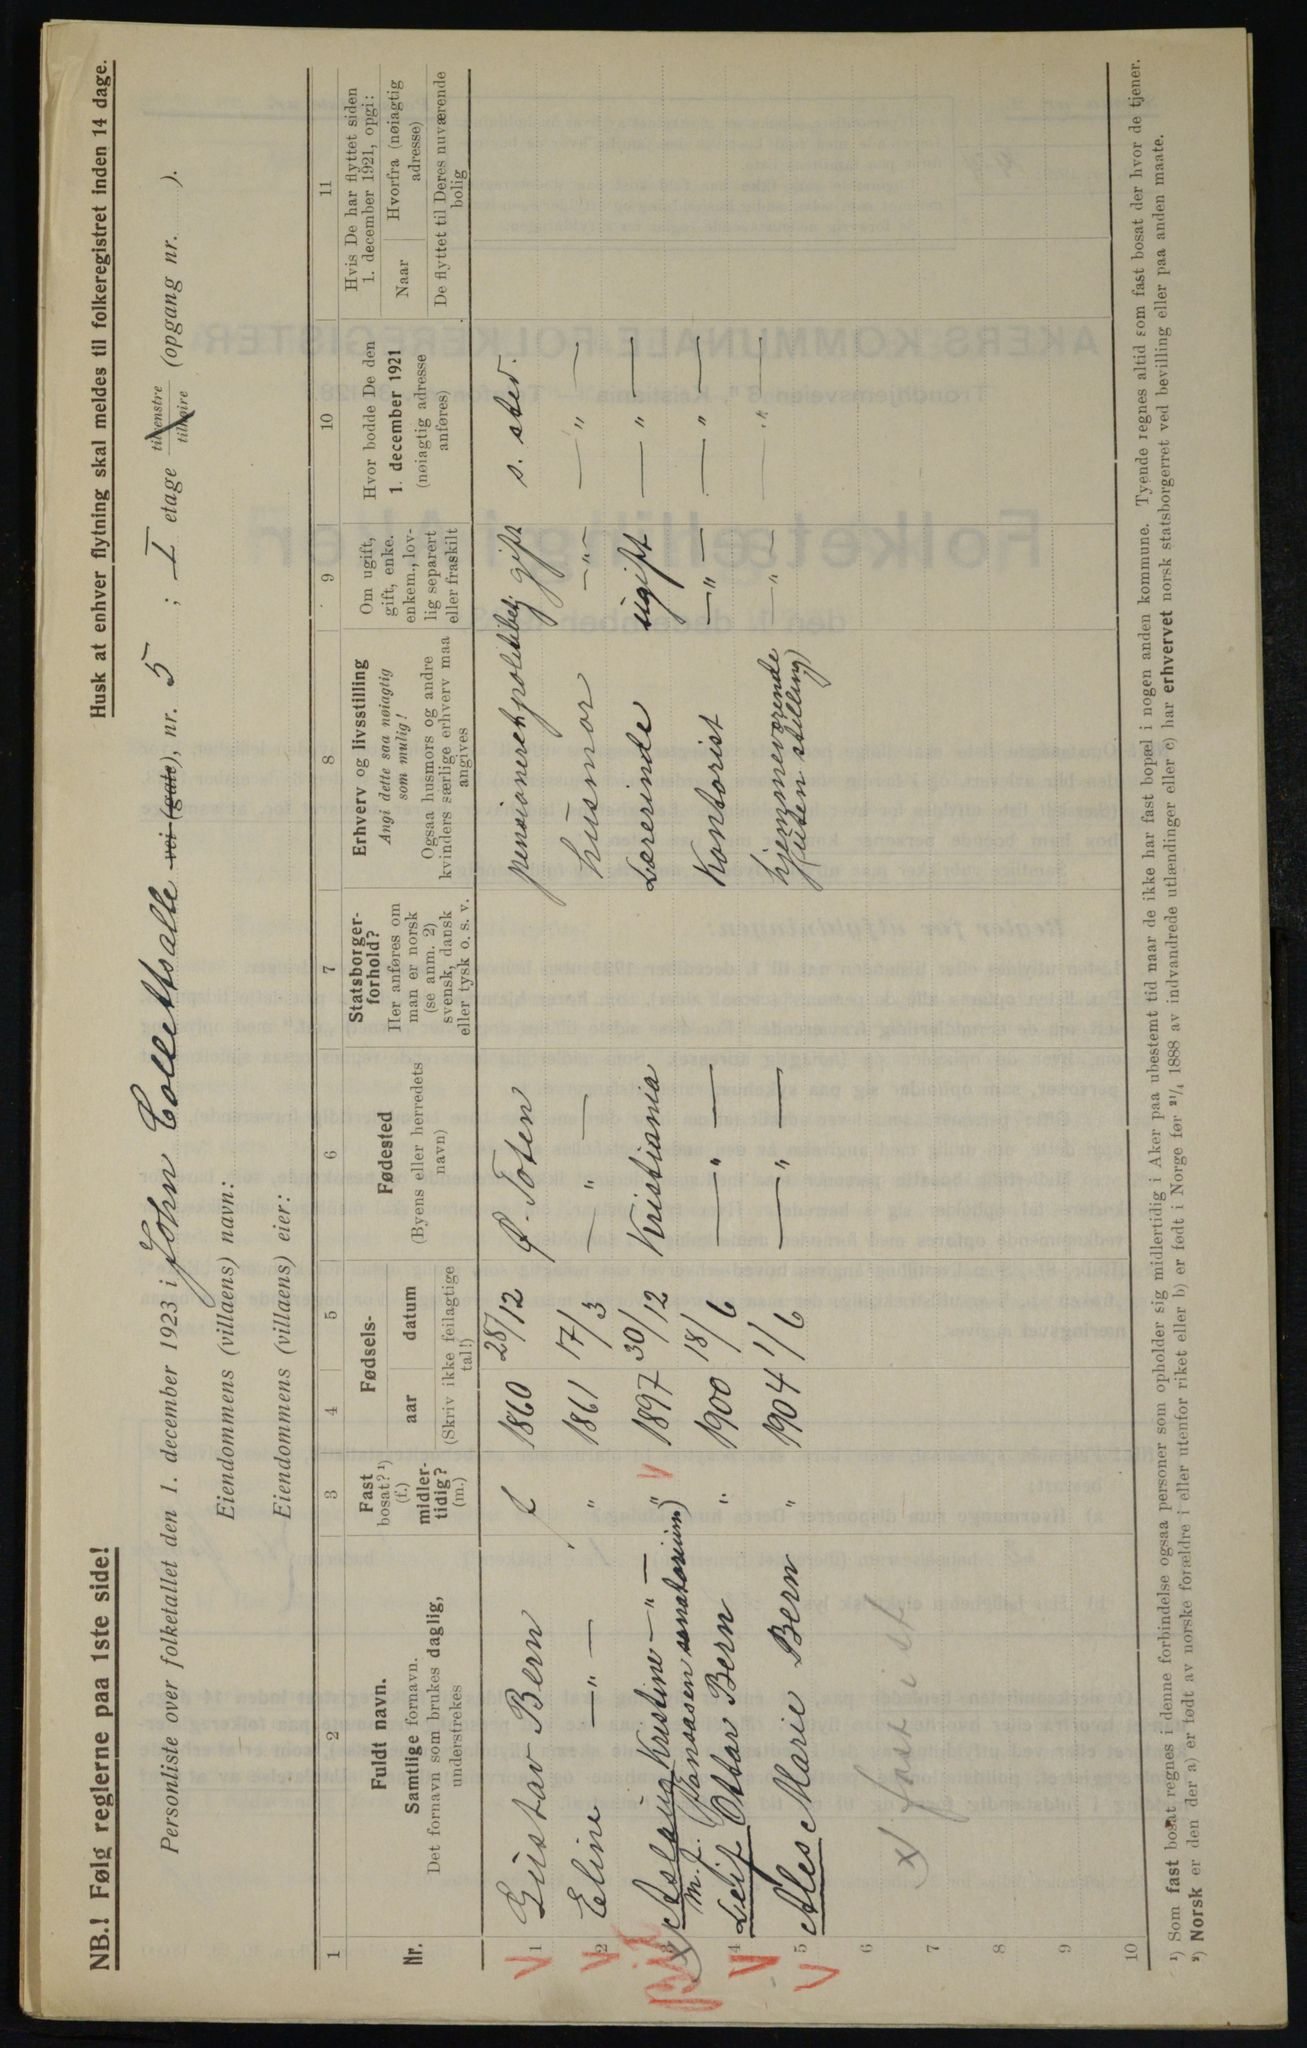 NB.! Følg reglerne paa 1ste side!
Husk at enhver flytning skal meldes til folkeregistret inden 14 dage.
Personliste over folketallet den 1. december 1923 i John Colletts alle vei (gate), nr. 5 ; I etage tilvenstre tilhøire (opgang nr. ).
Eiendommens (villaens) navn:
Eiendommens (villaens) eier:
1 2 3 4 5 6 7 8 9 10 11
Nr.
Fuldt navn.
Samtlige fornavn.
Det fornavn som brukes daglig,
understrekes
Fast
bosat? ¹)
(f.)
midler-
tidig?
(m.)
Fødsels-
aar datum
(Skriv ikke feilagtige
tal!)
Fødested
(Byens eller herredets
navn)
Statsborger-
forhold?
Her anføres om
man er norsk
(se anm. 2)
svensk, dansk
eller tysk o. s. v.
Erhverv og livsstilling
Angi dette saa nøiagtig
som mulig!
Ogsaa husmors og andre
kvinders særlige erhverv maa
angives
Om ugift,
gift, enke.
enkem., lov-
lig separert
eller fraskilt
Hvor bodde De den
1. december 1921
(nøiagtig adresse
anføres)
Hvis De har flyttet siden
1. december 1921, opgi:
Naar Hvorfra (nøiagtig
adresse)
De flyttet til Deres nuværende
bolig
1 Gustav Bern f 1860 28/12 Ø. Toten pensioneret politibetj. gift s. sted.
2 Eline — " — " 1861 17/3 — " — husmor — " — — " —
3 Aslaug Kristine — " — " 1897 30/12 Kristiania Lærerinde ugift — " —
m. f. sanatorium)
4 Leif Ottar Bern " 1900 18/6 — " — Kontorist — " — — " —
5 Ales Marie Bern " 1904 1/6 — " — hjemmeværende
(uten stilling) — " — — " —
6
7
8
9
10
¹) Som fast bosat regnes i denne forbindelse ogsaa personer som opholder sig midlertidig i Aker paa ubestemt tid naar de ikke har fast bopæl i nogen anden kommune. Tyende regnes altid som fast bosat der hvor de tjener.
²) Norsk er den der a) er født av norske forældre i eller utenfor riket eller b) er født i Norge før 21/4 1888 av indvandrede utlændinger eller c) har erhvervet norsk statsborgerret ved bevilling eller paa anden maate.